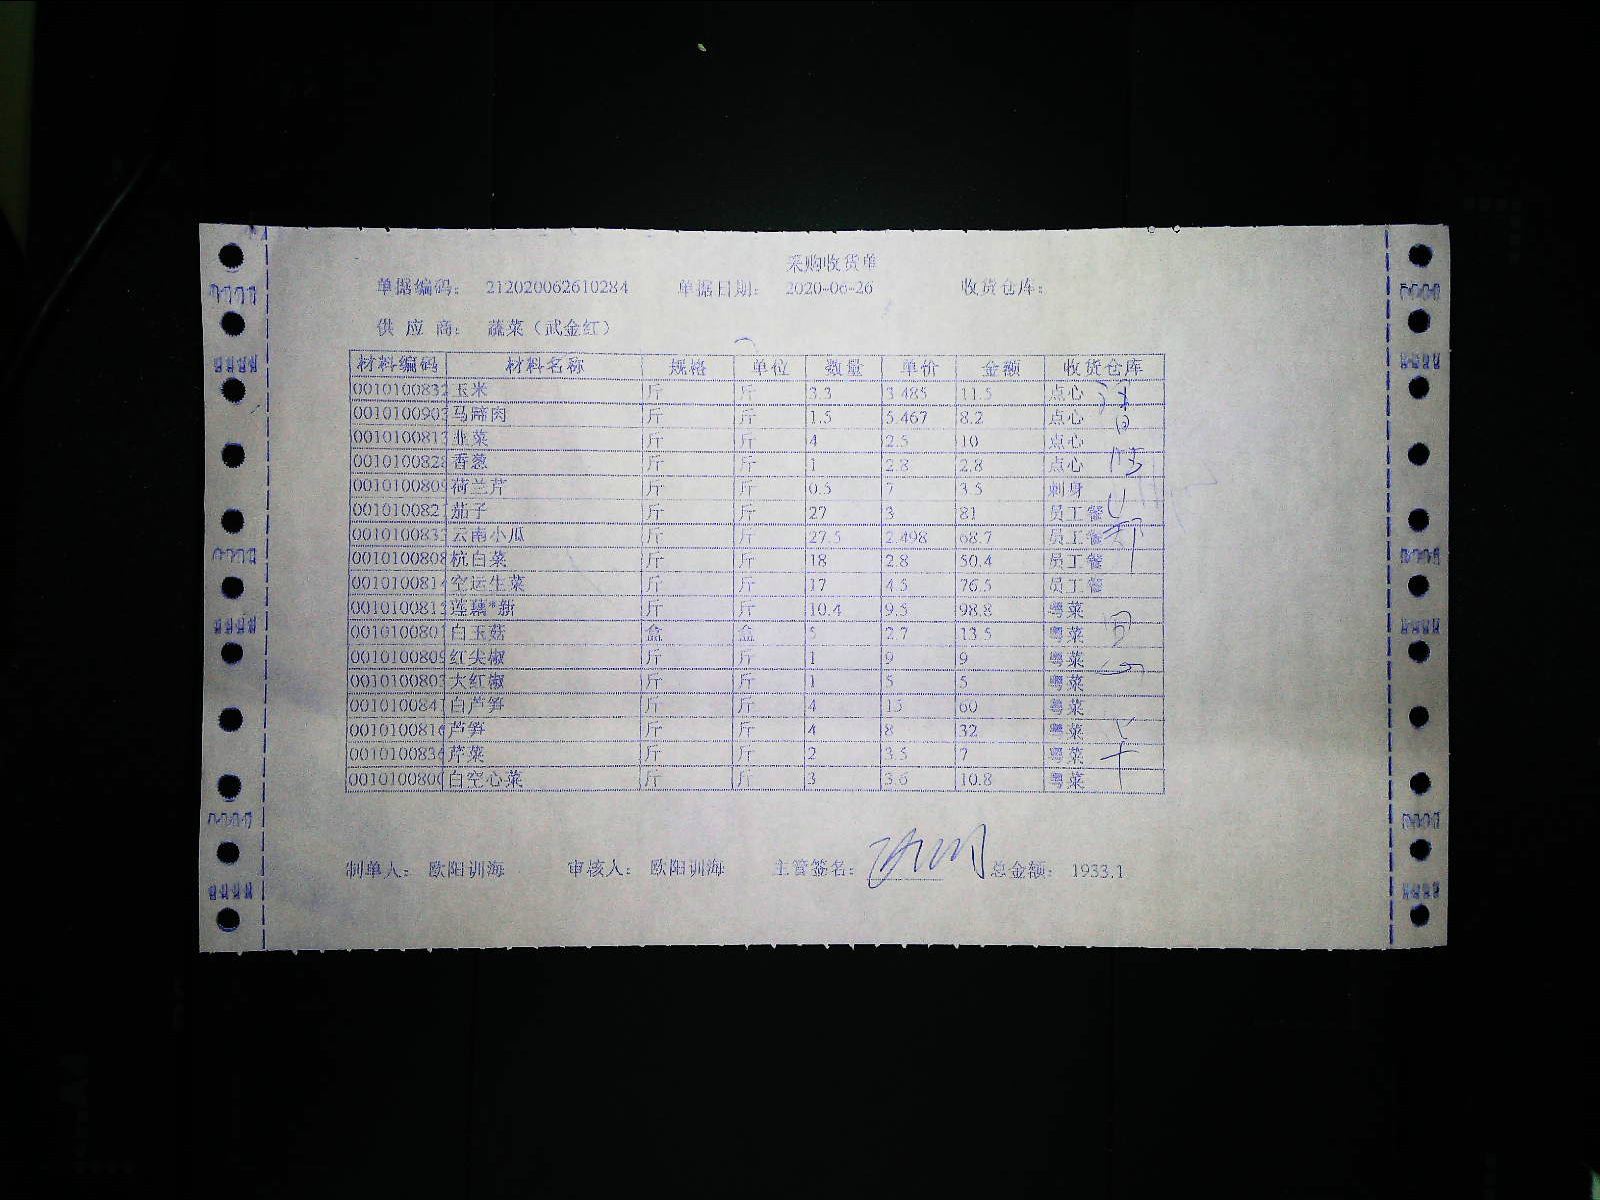 采购收货单
单据编码: 212020062610284 单据日期: 2020-06-26 收货仓库:
供应商: 蔬菜（武金红）
材料编码 材料名称 规格 单位 数量 单价 金额 收货仓库
001010083 玉米 斤 斤 3.3 3.485 11.5 点心
001010090 马蹄肉 斤 斤 1.5 5.467 8.2 点心
001010081 韭菜 斤 斤 4 2.5 10 点心
001010082 香葱 斤 斤 1 2.8 2.8 点心
001010080 荷兰芹 斤 斤 0.5 7 3.5 刺身
001010082 茄子 斤 斤 27 3 81 员工餐
001010083 云南小瓜 斤 斤 27.5 2.498 68.7 员工餐
001010080 杭白菜 斤 斤 18 2.8 50.4 员工餐
001010081 空运生菜 斤 斤 17 4.5 76.5 员工餐
001010081 莲藕*新 斤 斤 10.4 9.5 98.8 粤菜
001010080 白玉菇 盒 盒 5 2.7 13.5 粤菜
001010080 红尖椒 斤 斤 1 9 9 粤菜
001010080 大红椒 斤 斤 1 5 5 粤菜
001010084 白芦笋 斤 斤 4 15 60 粤菜
001010081 芦笋 斤 斤 4 8 32 粤菜
001010083 芹菜 斤 斤 2 3.5 7 粤菜
001010080 白空心菜 斤 斤 3 3.6 10.8 粤菜
制单人: 欧阳训海 审核人: 欧阳训海 主管签名: 总金额: 1933.1